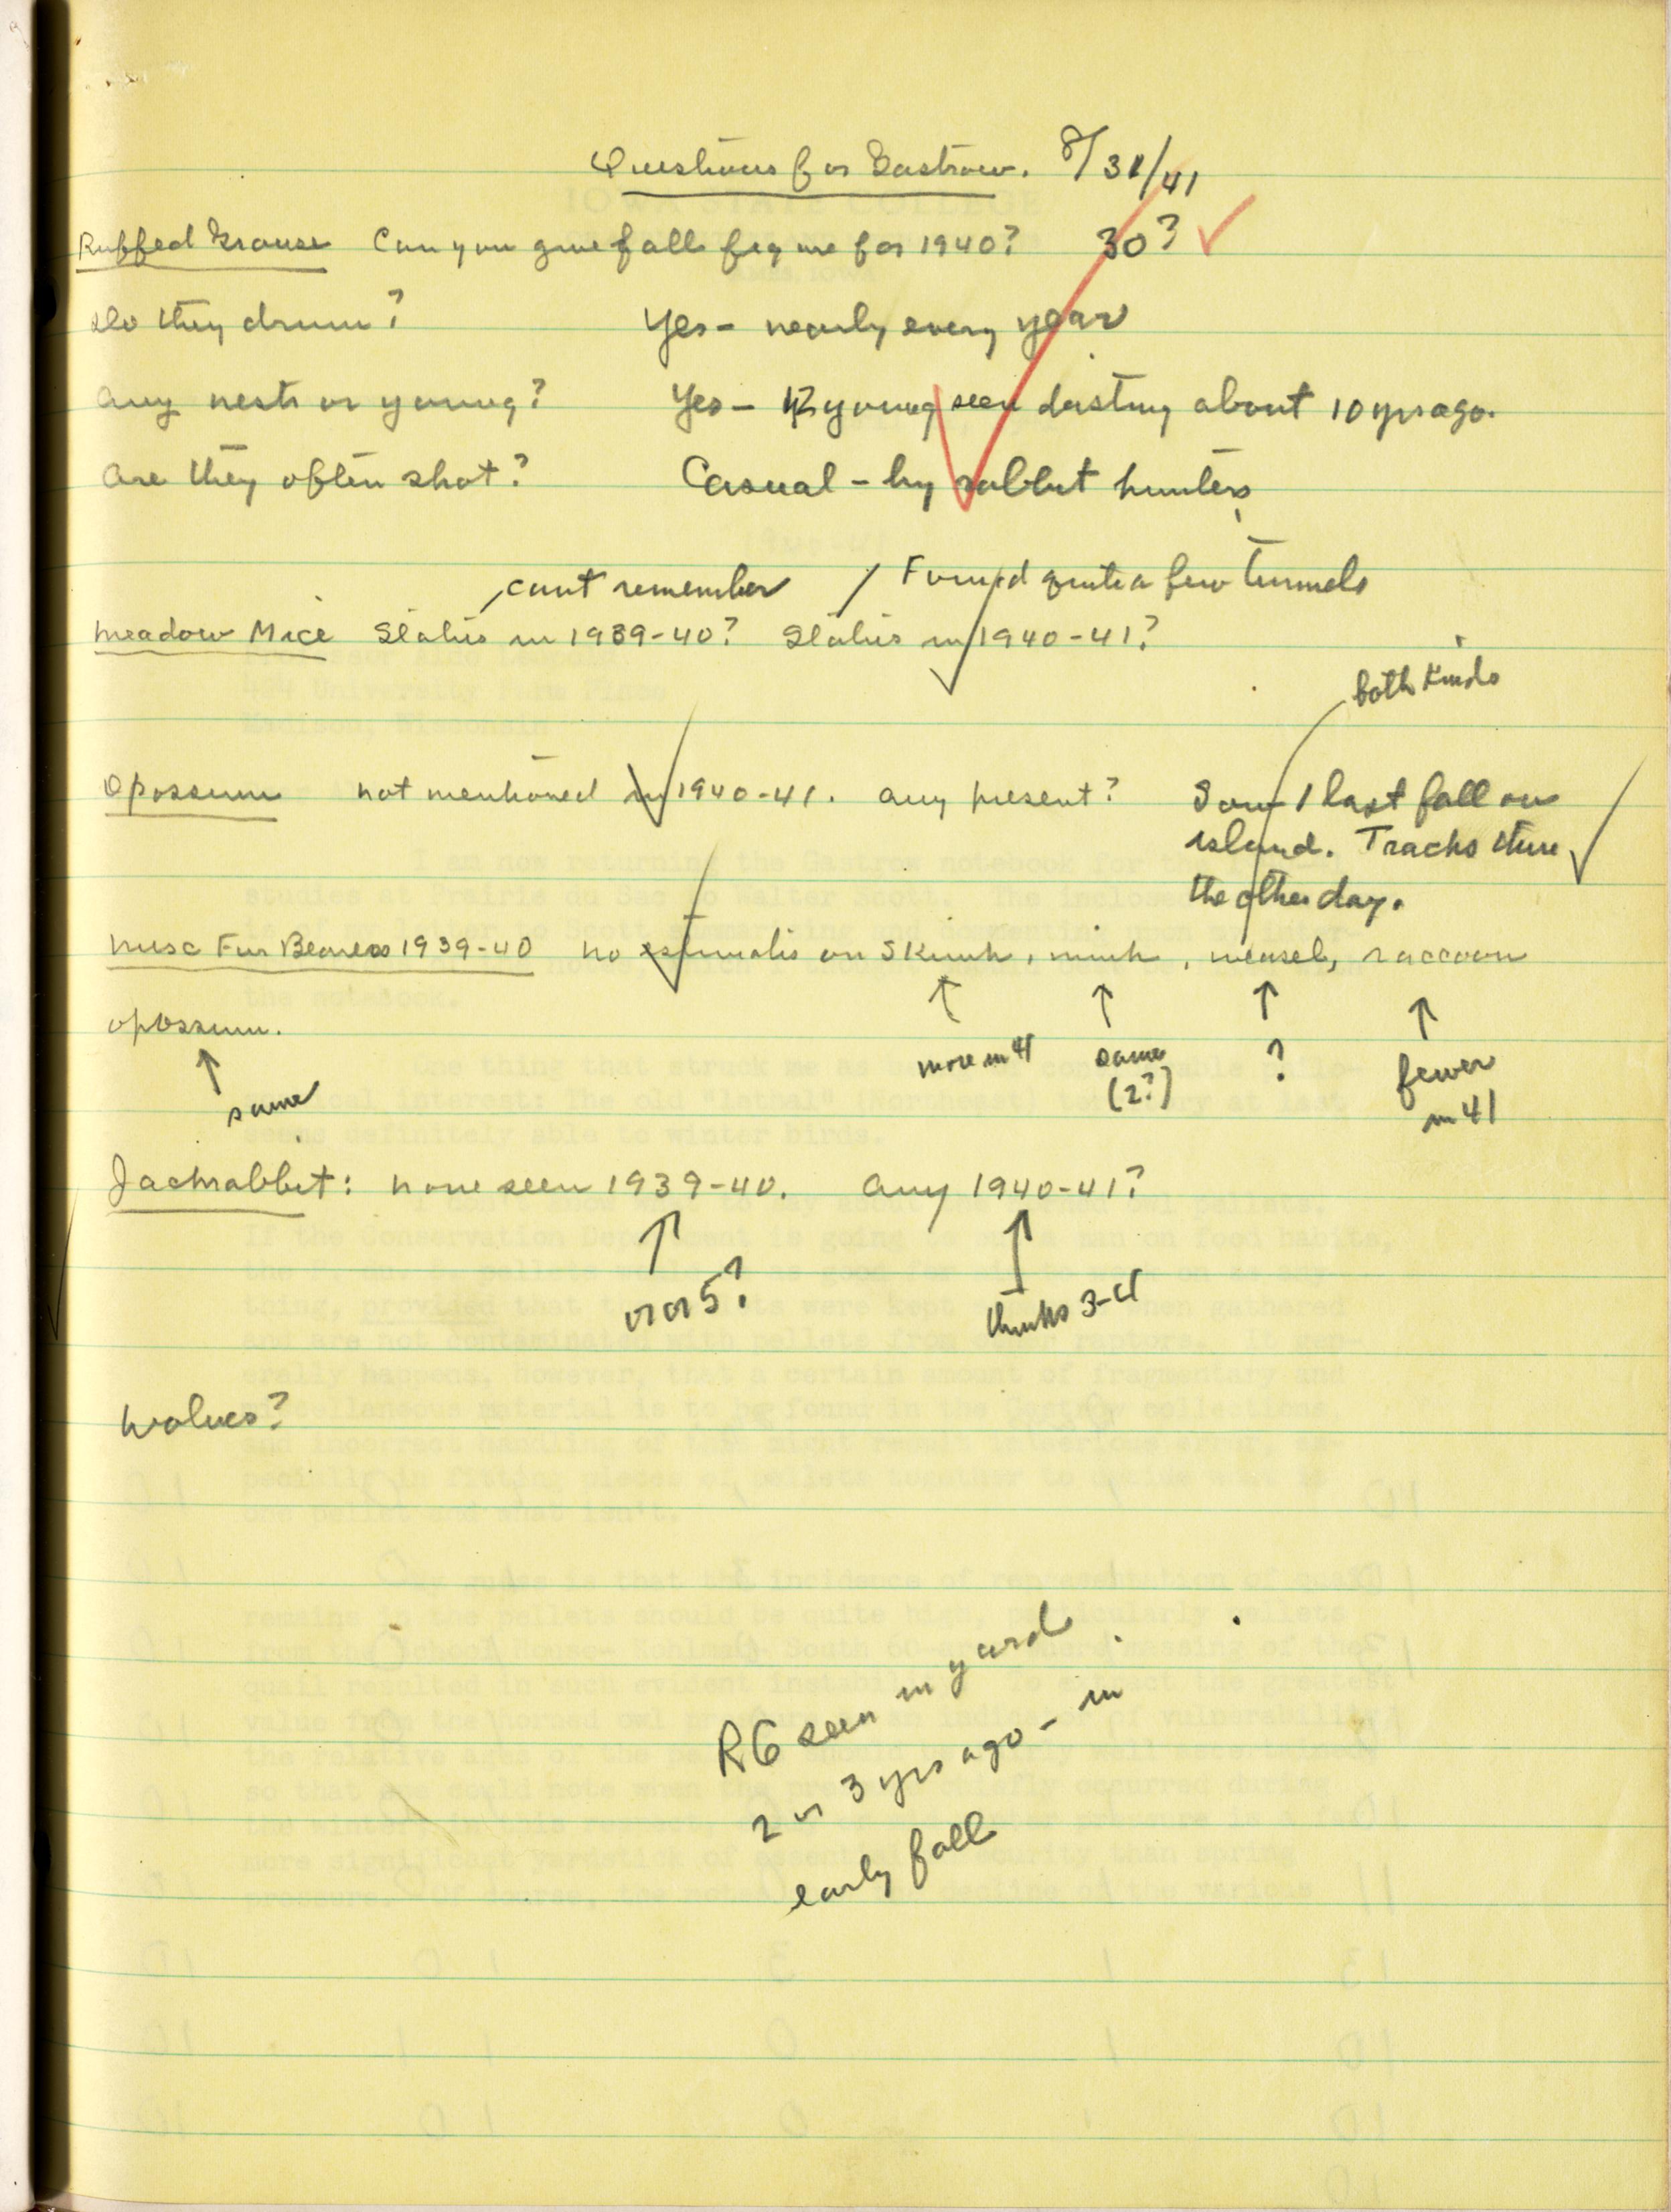 Questions for Gastrow. 8/31/41
Ruffed Grouse Can you give fall figure for 1940? 30?
Do they drum? Yes - nearly every year
Any nests or young? Yes - 12 young seen dusting about 10 yrs ago.
Are they often shot? Casual - by rabbit hunters
cant remember / Found quite a few tunnels
Meadow Mice Status in 1939-40? Status in 1940-41?
both kinds
Opossum not mentioned in 1940-41. Any present? Saw 1 last fall on
island. Tracks there
the other day.
Misc Fur Bearers 1939-40 no estimates on skunk, mink, weasel, raccoon
opossum.
more in 41 same ? fewer
(2?) in 41
same
Jackrabbit: none seen 1939-40. Any 1940-41?
or 5? thinks 3-4
Wolves?
RG seen in yard
2 or 3 yrs ago - in
early fall